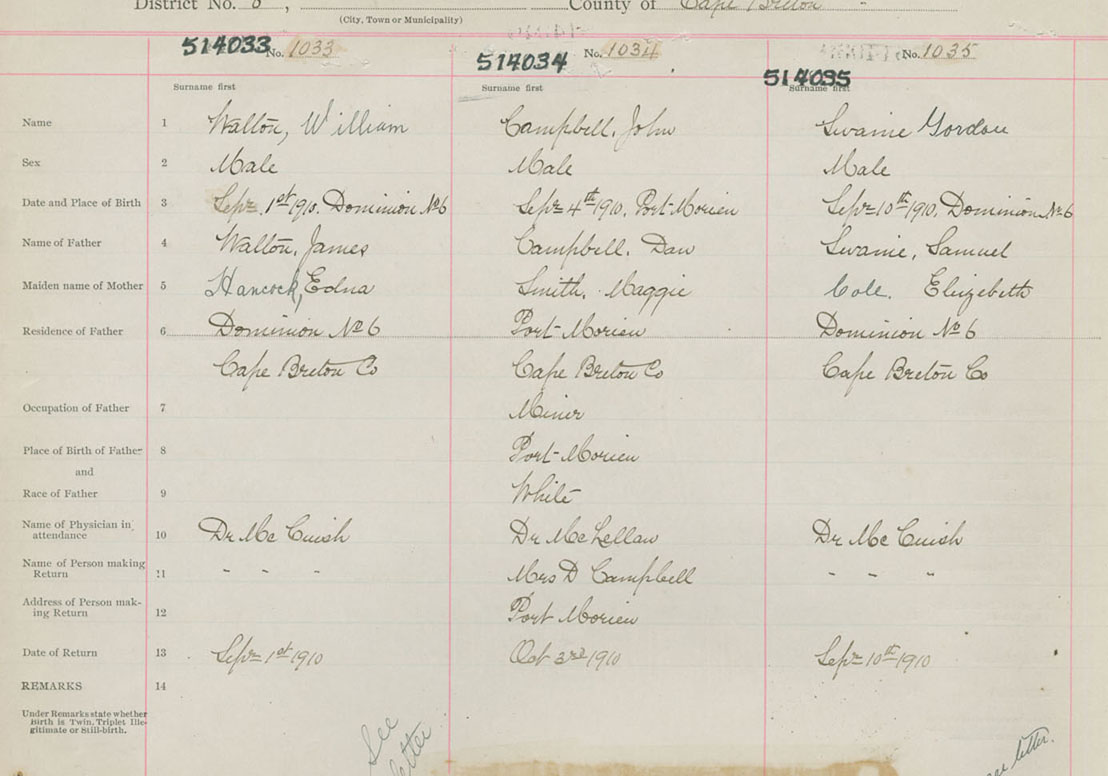 District No. 6, County of Cape Breton
(City, Town or Municipality)
514033 No. 1033 514034 No. 1034 514035 No. 1035
Surname first Surname first Surname first
Name 1 Walton, William Campbell, John Swaine Gordon
Sex 2 Male Male Male
Date and Place of Birth 3 Sepr 1st 1910. Dominion No 6 Sepr 4th 1910. Port-Morien Sepr 10th 1910. Dominion No 6
Name of Father 4 Walton, James Campbell. Dan Swaine, Samuel
Maiden name of Mother 5 Hancock, Edna Smith. Maggie Cole. Elizebeth
Residence of Father 6 Dominion No 6 Port-Morien Dominion No 6
Cape Breton Co Cape Breton Co Cape Breton Co
Occupation of Father 7 Miner
Place of Birth of Father 8 Port-Morien
and
Race of Father 9 White
Name of Physician in attendance 10 Dr McCuish Dr McLellan Dr McCuish
Name of Person making Return 11 " " " Mrs D Campbell " " "
Address of Person making Return 12 Port Morien
Date of Return 13 Sepr 1st 1910 Oct 3rd 1910 Sepr 10th 1910
REMARKS 14
Under Remarks state whether
Birth is Twin, Triplet Ille-
gitimate or Still-birth.
See
letter
letter.